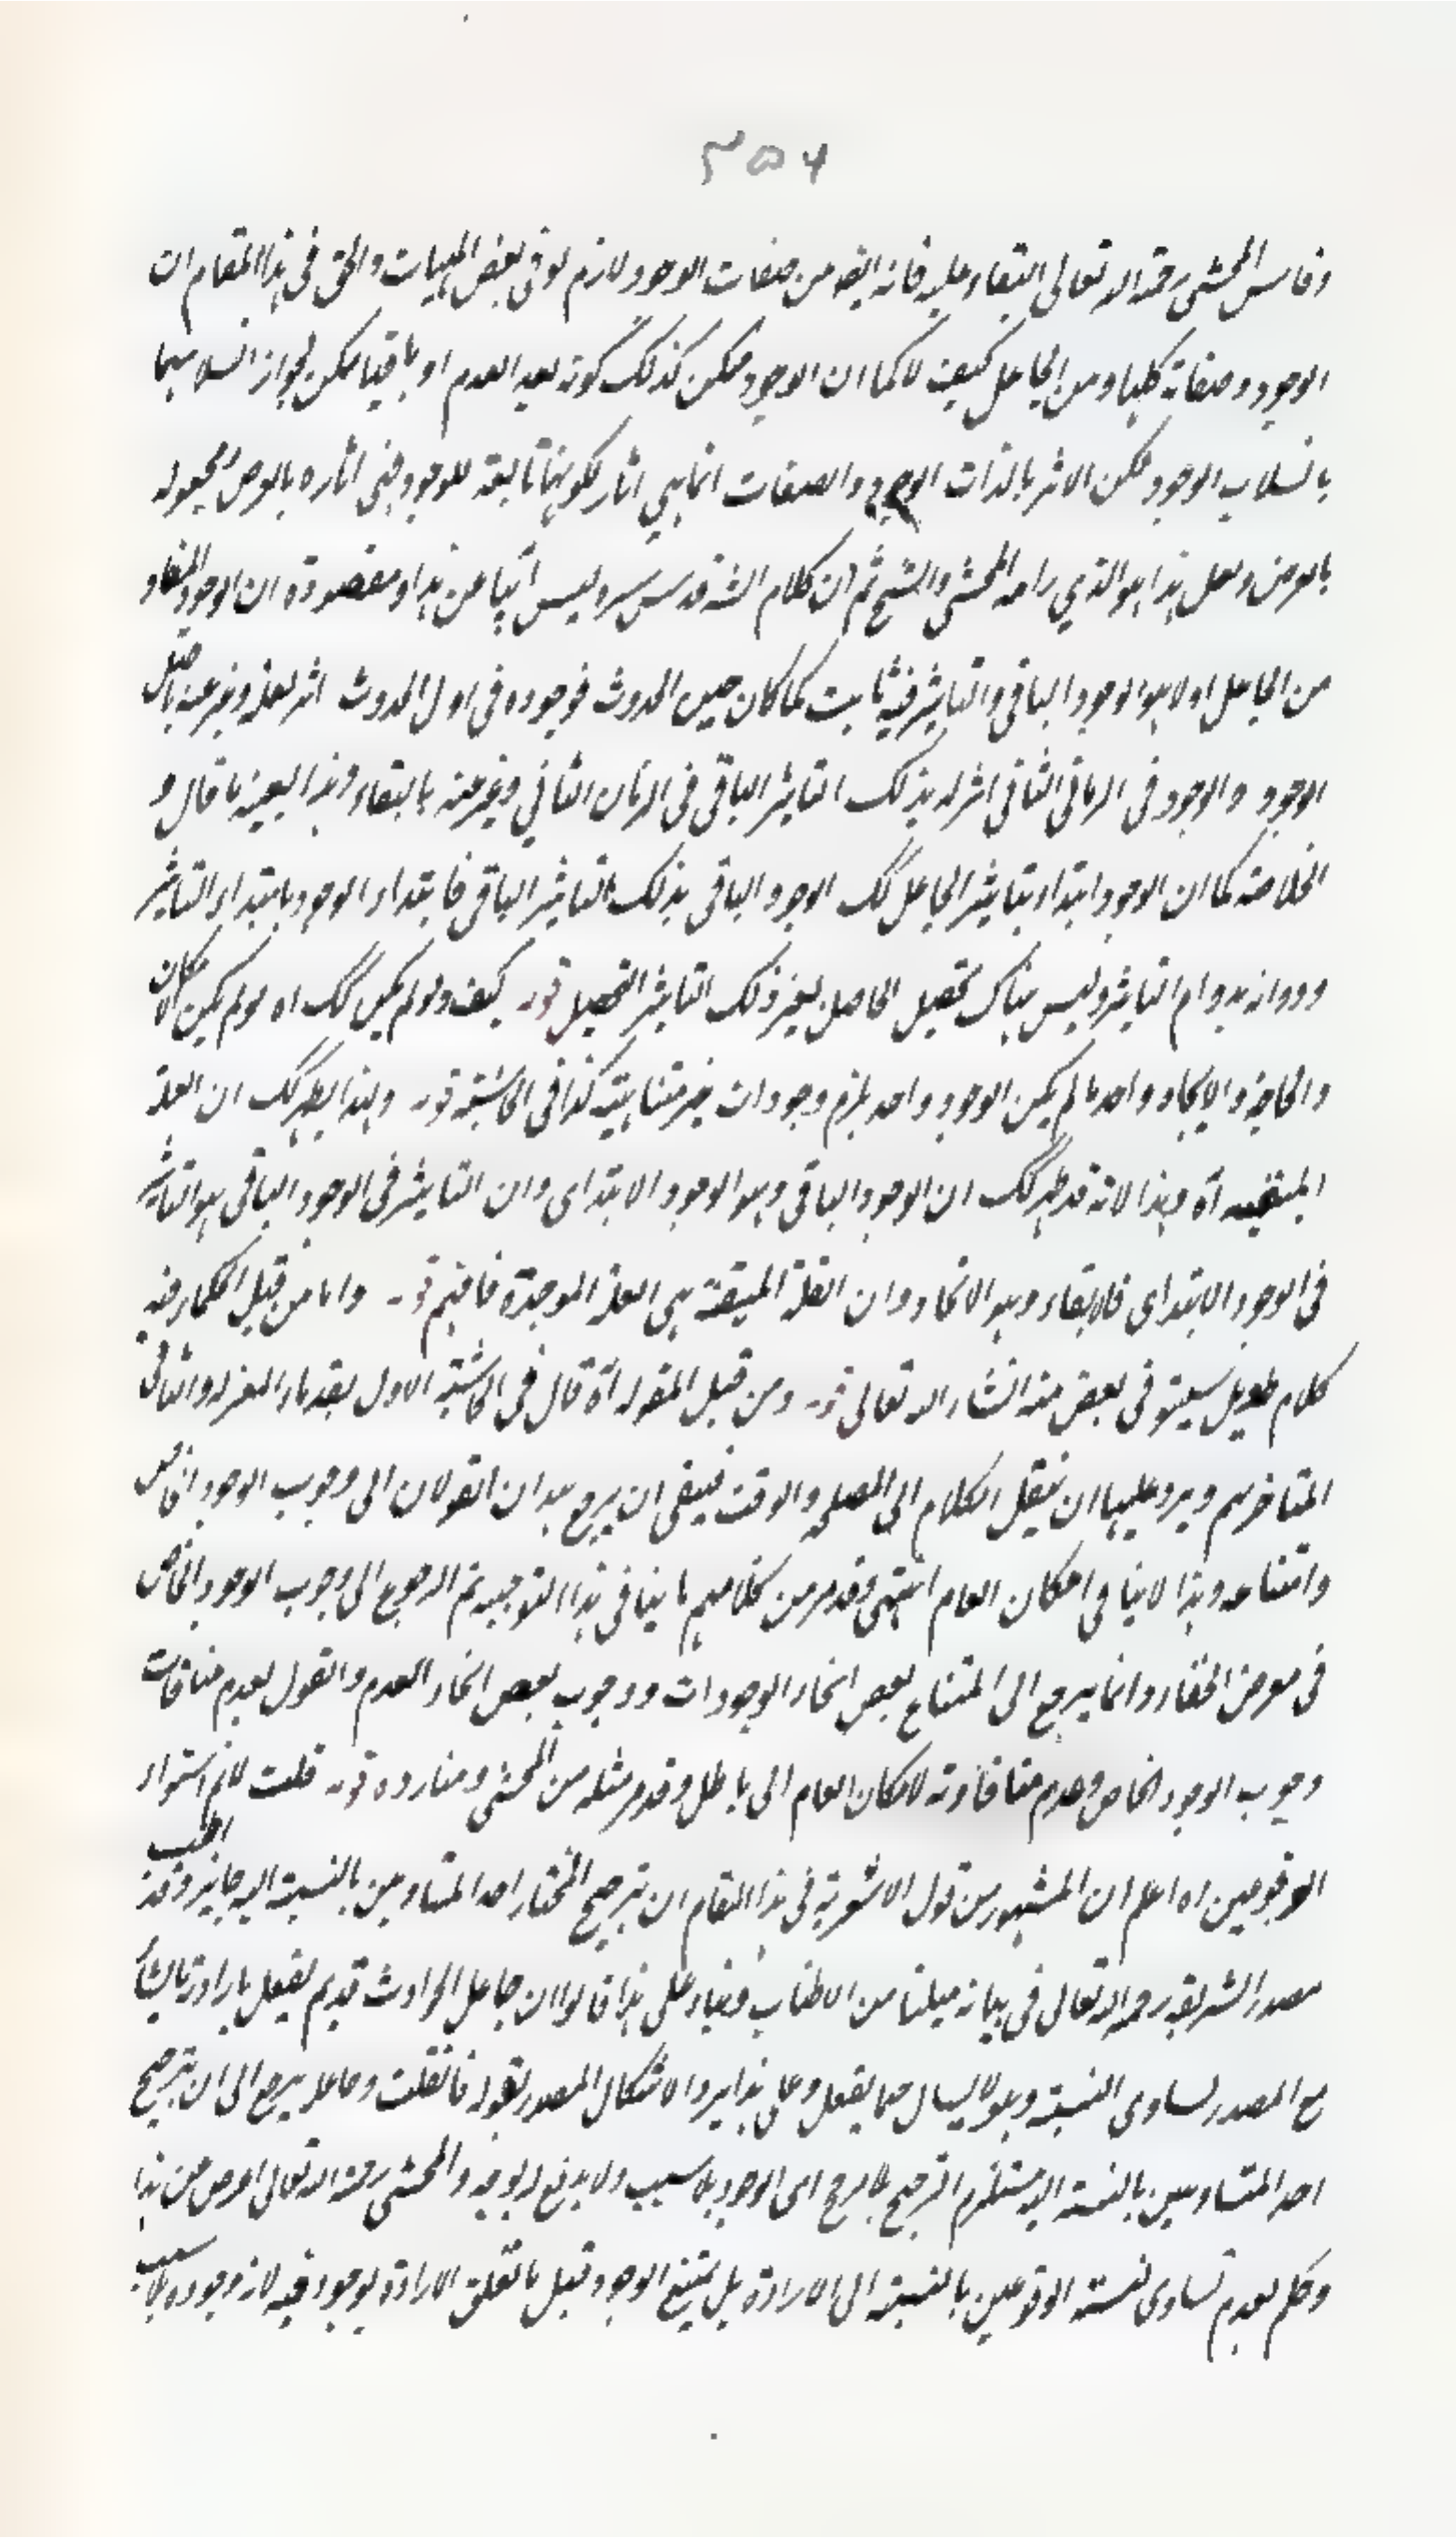 ٣٥٦
وقاس المحشى رحمه الله تعالى البقاء عليه فانه ايضا من صفات الوجود ولازم لوفى بعض المهيات والحق فى هذا المقام ان
الوجود وصفاته كلها من الجاعل كيف لا كما ان الوجود ممكن كذلك كونه بعد العدم او باقيا ممكن لجواز انسلابهما
بانسلاب الوجود لكن الاثر بالذات الوجود والصفات انما هى اثار لكونها تابعة للوجود فهى اثاره بالعرض مجعولة
بالعرض ولعل هذا هو الذي رامه المحشى والشيخ ثم ان كلام الش قدس سره ليس آبيا عن هذا ومقصوده ان الوجود المفاد
من الجاعل اولا هو الوجود الباقى والتاثير فيه ثابت كما كان حين الحدوث فوجوده فى اول الحدوث اثر لعلة ويعبر عنه باصل
الوجود والوجود فى الزمان الثانى اثر له بذلك التاثير الباقى فى الزمان الثاني ويعبر عنه بالبقاء وهذا بعينه ما قال و
الخلاصة كما ان الوجود ابتداء بتاثير الجاعل كك الوجود الباقى بذلك التاثير الباقى فابتداء الوجود بابتداء التاثير
ودوامه بدوام التاثير وليس هناك تحصيل الحاصل بغير ذلك التاثير التحصيل قوله كيف ولو لم يكن كك اه لو لم يكن الامكان
والحاجة والايجاد واحدا لم يكن الوجود واحدا يلزم وجودات غير متناهية كذا فى الحاشية قوله وبهذا يظهر لك ان العلة
المبقية آه وهذا لانه قد ظهر لك ان الوجود الباقى وهو الوجود الابتداى وان التاثير فى الوجود الباقى هو التاثير
فى الوجود الابتداى فالابقاء وهو الايجاد وان العلة المبقية هى العلة الموجدة فافهم قوله واما من قبل الحكماء ففيه
كلام طويل سيجئ فى بعض منه انشاء الله تعالى قوله ومن قبل المعتزلة آه قال فى الحاشية الاول لقدماء المعتزلة والثانى
المتاخريهم ويرد عليهما ان ينقل الكلام الى المصلحة والوقت فينبغى ان يرجع هذان القولان الى وجوب الوجود الخاص
وامتناعه وهذا لا ينافى امكان العام انتهى وقد مر من كلامهم ما ينافى هذا التوجيه ثم الرجوع الى وجوب الوجود الخاص
فى معرض الخفاء وانما يرجع الى امتناع بعض انحاء الوجودات ووجوب بعض انحاء العدم والقول بعدم منافات
وجوب الوجود الخاص وعدم منافاته لامكان العام الى باطل وقد مر مثله من المحشى ومنا رده قوله قلت لانم استواء
الوقوعين اه اعلم ان المشهور من قول الاشعرية فى هذا المقام ان ترجيح المختار احد المتساويين بالنسبة اليه جايز وقد اطنب
صدر الشريعة رحمه الله تعالى فى بيانه مبلغا من الاطناب وبناء على هذا قالوا ان جاعل الحوادث قديم يفعل بارادته ما يشاء
مع المصدر تساوى النسبة وهو لا يسال عما يفعل وعلى هذا يرد الاشكال المصدر بقوله فان قلت وحاصله يرجع الى ان ترجيح
احد المتساويين بالنسبة اليه مستلزم الترجيح بلا مرجح اى الوجود بلا سبب ولا يدفع له بوجه والمحشى رحمه الله تعالى اعرض عن هذا
وحكم بعدم تساوى نسبة الوقوعين بالنسبة الى الارادة بل يمتنع الوجود قبل ما تعلق الارادة بوجود فيه لانه وجوده بلا سبب